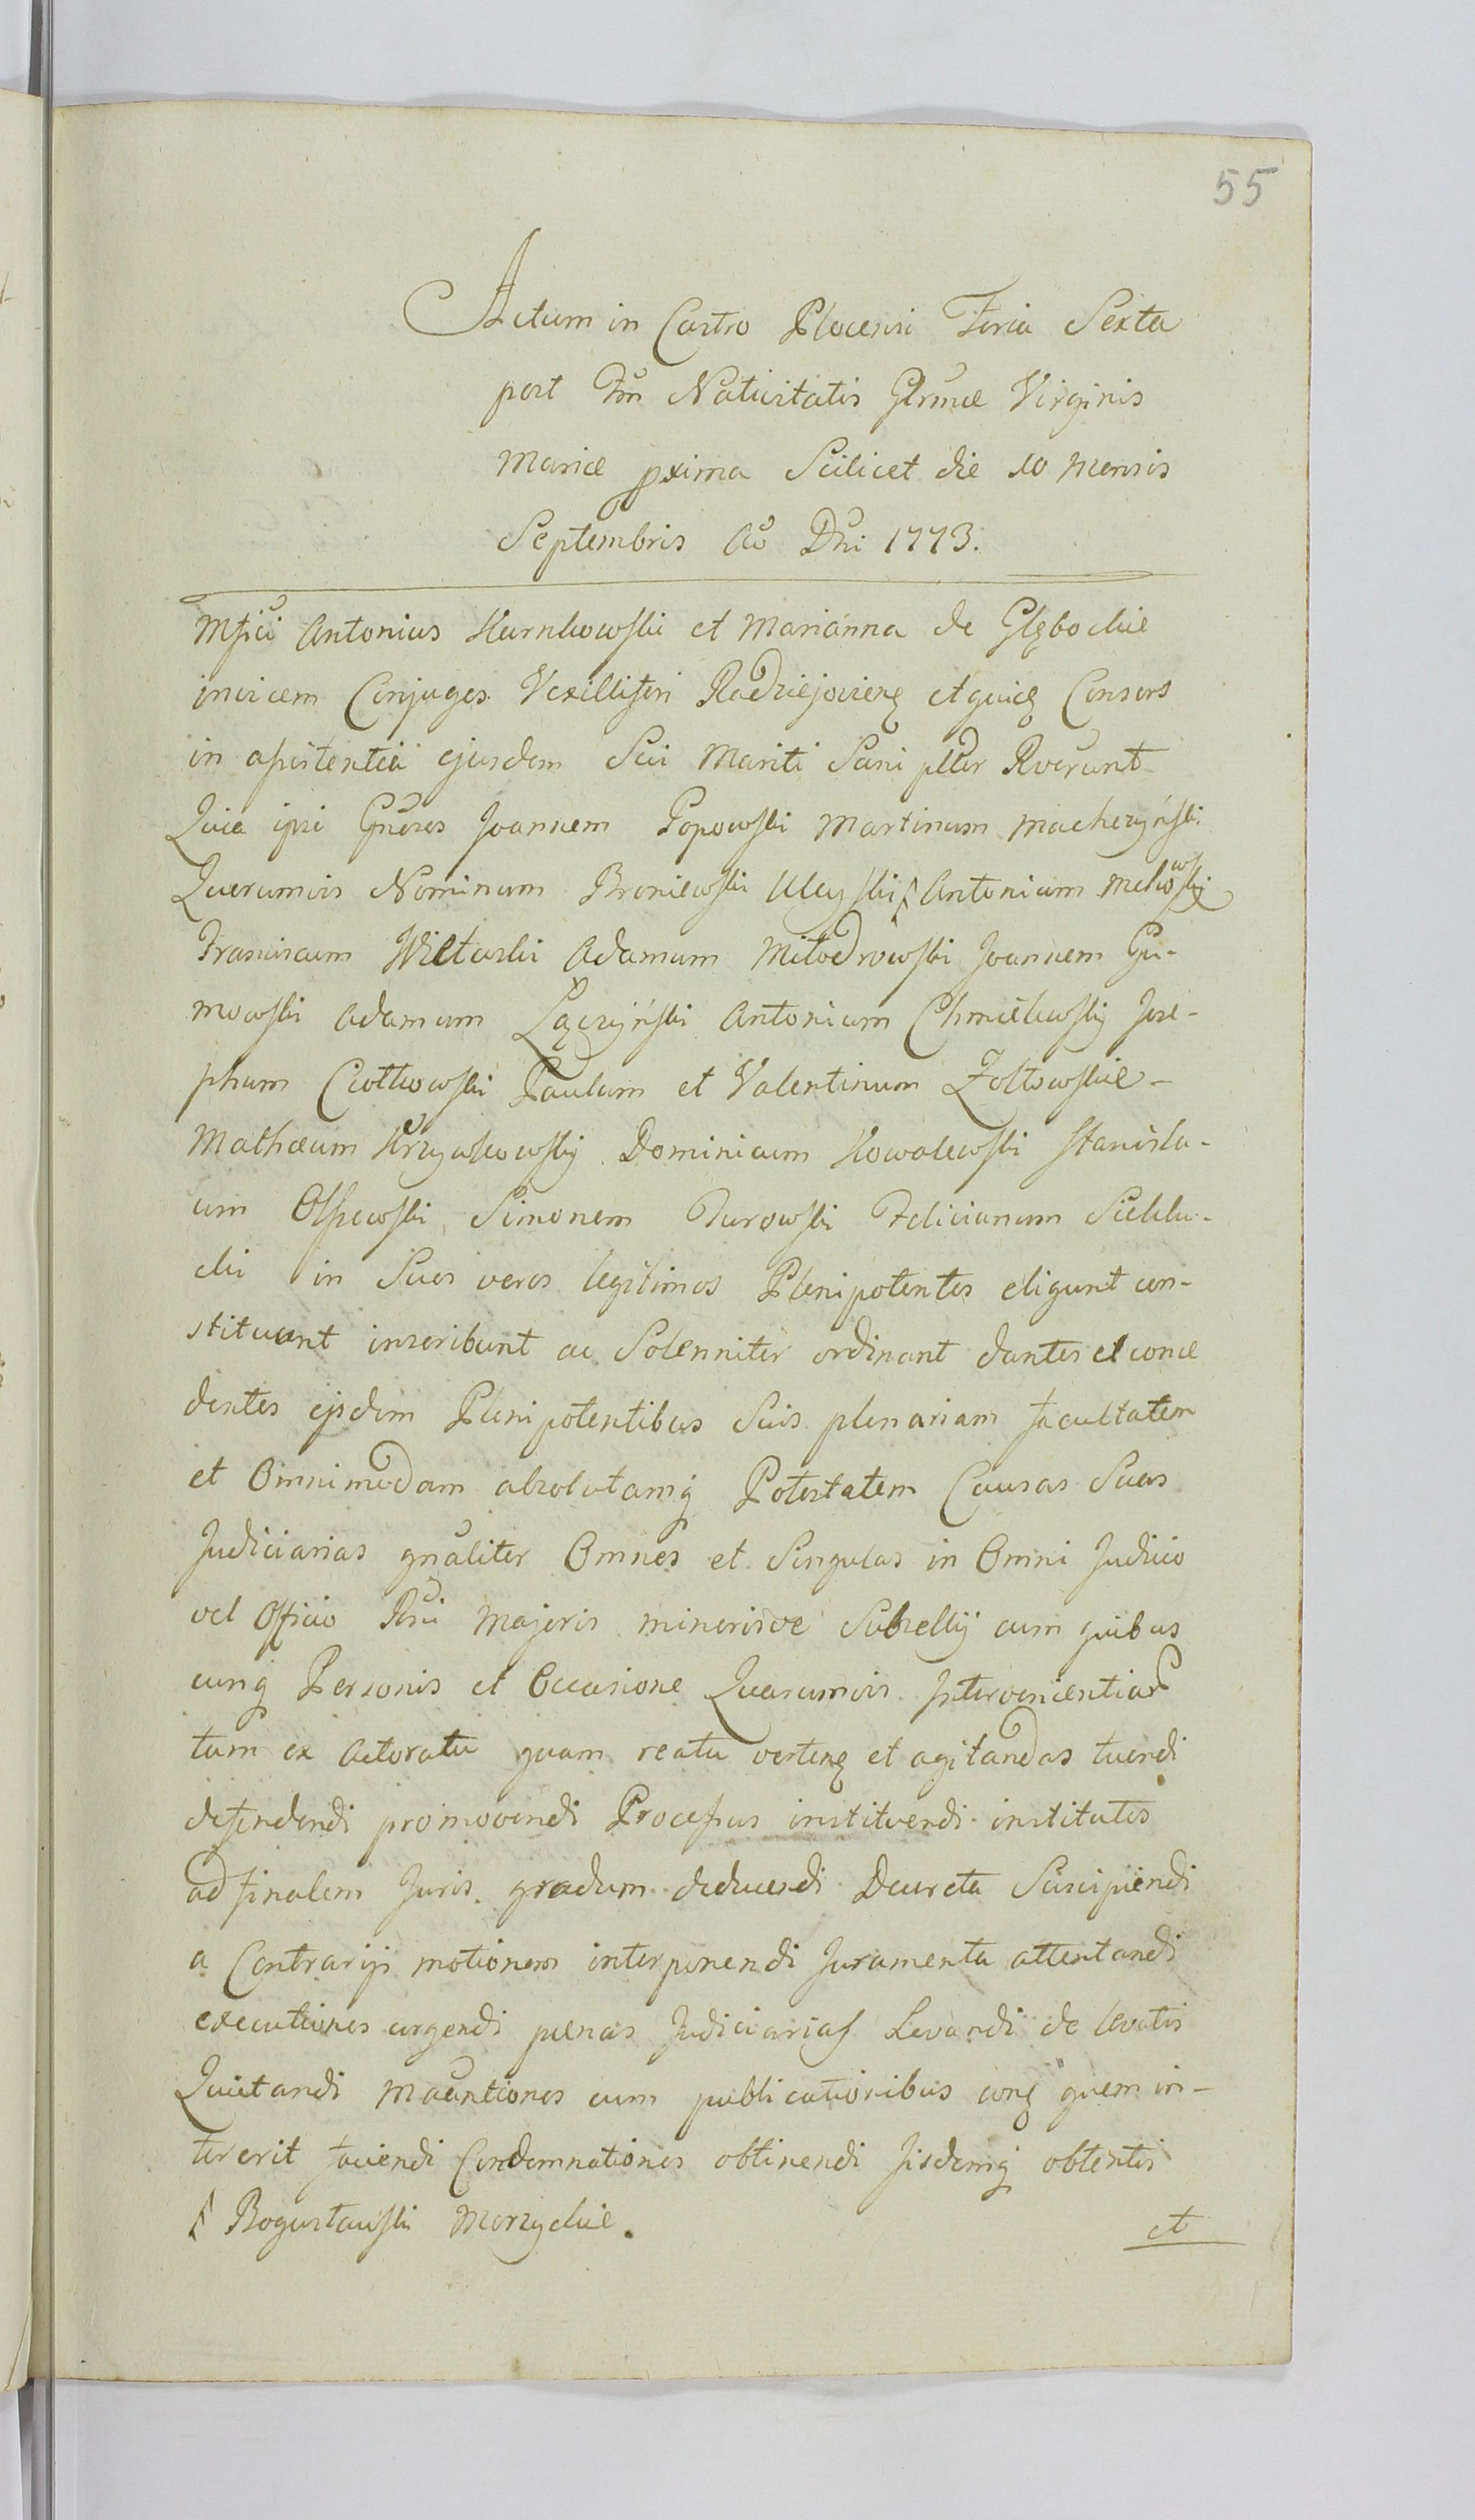 55
Actum in Castro Plocensi Feria Sexta
post Fm Nativitatis Glrmæ Virginis
Mariæ pxima Scilicet die 10 Mensis
Septembris Ao Dni 1773.
Mfici Antonius Karnkowski et Marianna de Głębockie
invicem Conjuges Vexilliferi Radziejovien et quid Consors
in assistentia ejusdem Sui Mariti Sani pltr Rverunt
Quia ipsi Gnosos Joannem Popowski Martinum Macherzyński
Quorumvis Nominum Broniewski Uleyski Antonium Miłkowski
Franciscum Wilczki Adamum Miłodrowski Joannem Gu-
mowski Adamum Łączyński Antonium Chmielewskij Jose-
phum Ciołkowski Paulum et Valentinum Żołtowskie
Mathæum Krzyakowskij Dominicum Kowalewski Stanisla-
um Olszewski Simonem Turowski Felicianum Sieklu-
cki in Suos veros legitimos Plenipotentes eligunt con-
stituunt inscribunt ac Solenniter ordinant dantes et conce
dentes ejsdem Plenipotentibus Suis plenariam facultatem
et Omnimodam absolutamq Potestatem Causas Suas
Judiciarias gnaliter Omnes et Singulas in Omni Judicio
vel Officio Rni Majoris minorisve Subsellij cum quibus
cunq Personis et Occasione Quarumvis Intervenientiar
tum ex Actoratu quam reatu verten et agitandas tuendi
defendendi promovendi Processus instituendi institutos
ad finalem Juris gradum deducendi Decreta Suscipiendi
a Contrarijs motiones interponendi Juramenta attentandi
executiones urgendi pænas Judiciarias Levandi de levatis
Quietandi Maantiones cum publicationibus conq quem in-
tererit faciendi Condemnationes obtinendi Iisdemq obtentis
Bogusławski Morzyckie.
et